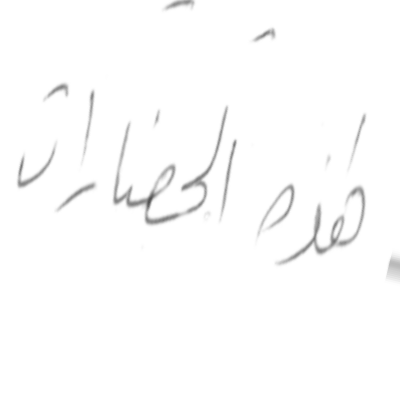 هذه الحضارات